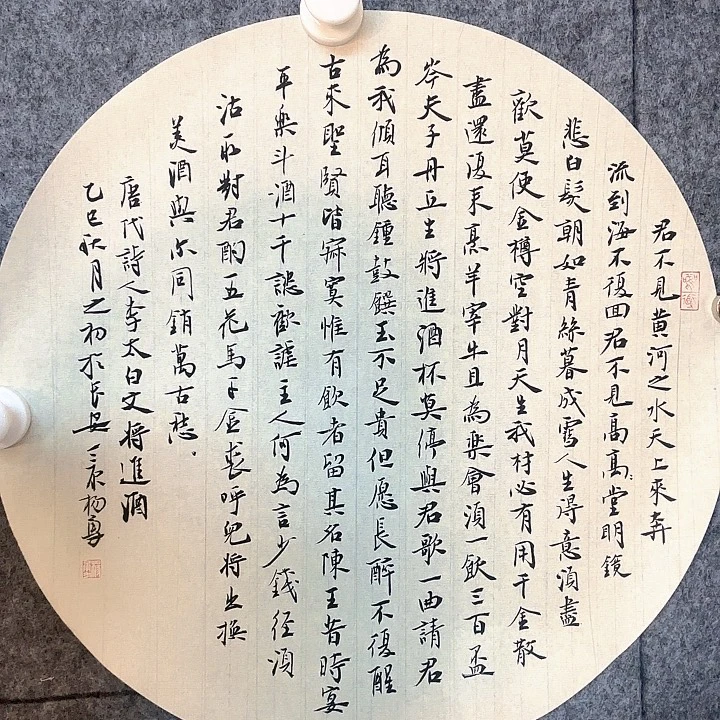 君不見黃河之水天上來奔
流到海不復回君不見高高堂明鏡
悲白髮朝如青絲暮成雪人生得意須盡
歡莫使金樽空對月天生我材必有用千金散
盡還復來烹羊宰牛且為樂會須一飲三百盃
岑夫子丹丘生將進酒杯莫停與君歌一曲請君
為我傾耳聽鍾鼓饌玉不足貴但愿長醉不復醒
古來聖賢皆寂寞惟有飲者留其名陳王昔時宴
平樂斗酒十千恣歡謔主人何為言少錢徑須
沽取對君酌五花馬千金裘呼兒將出換
美酒與尔同銷萬古愁
唐代詩人李太白文將進酒
乙巳秋月之初於長安三原楊